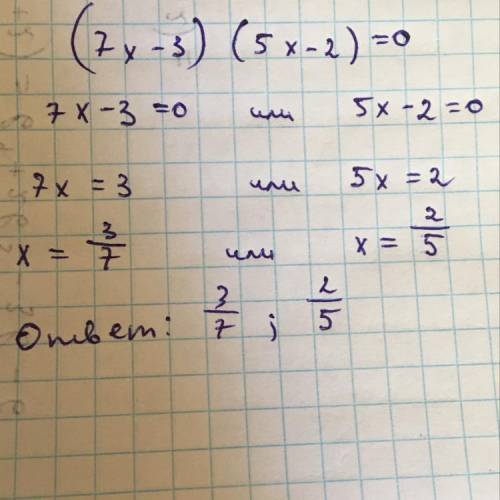 (7x-3) (5x-2)=0
7x-3=0 или 5x-2=0
7x=3 или 5x=2
x= 3/7 или x= 2/5
Ответ: 3/7 ; 2/5